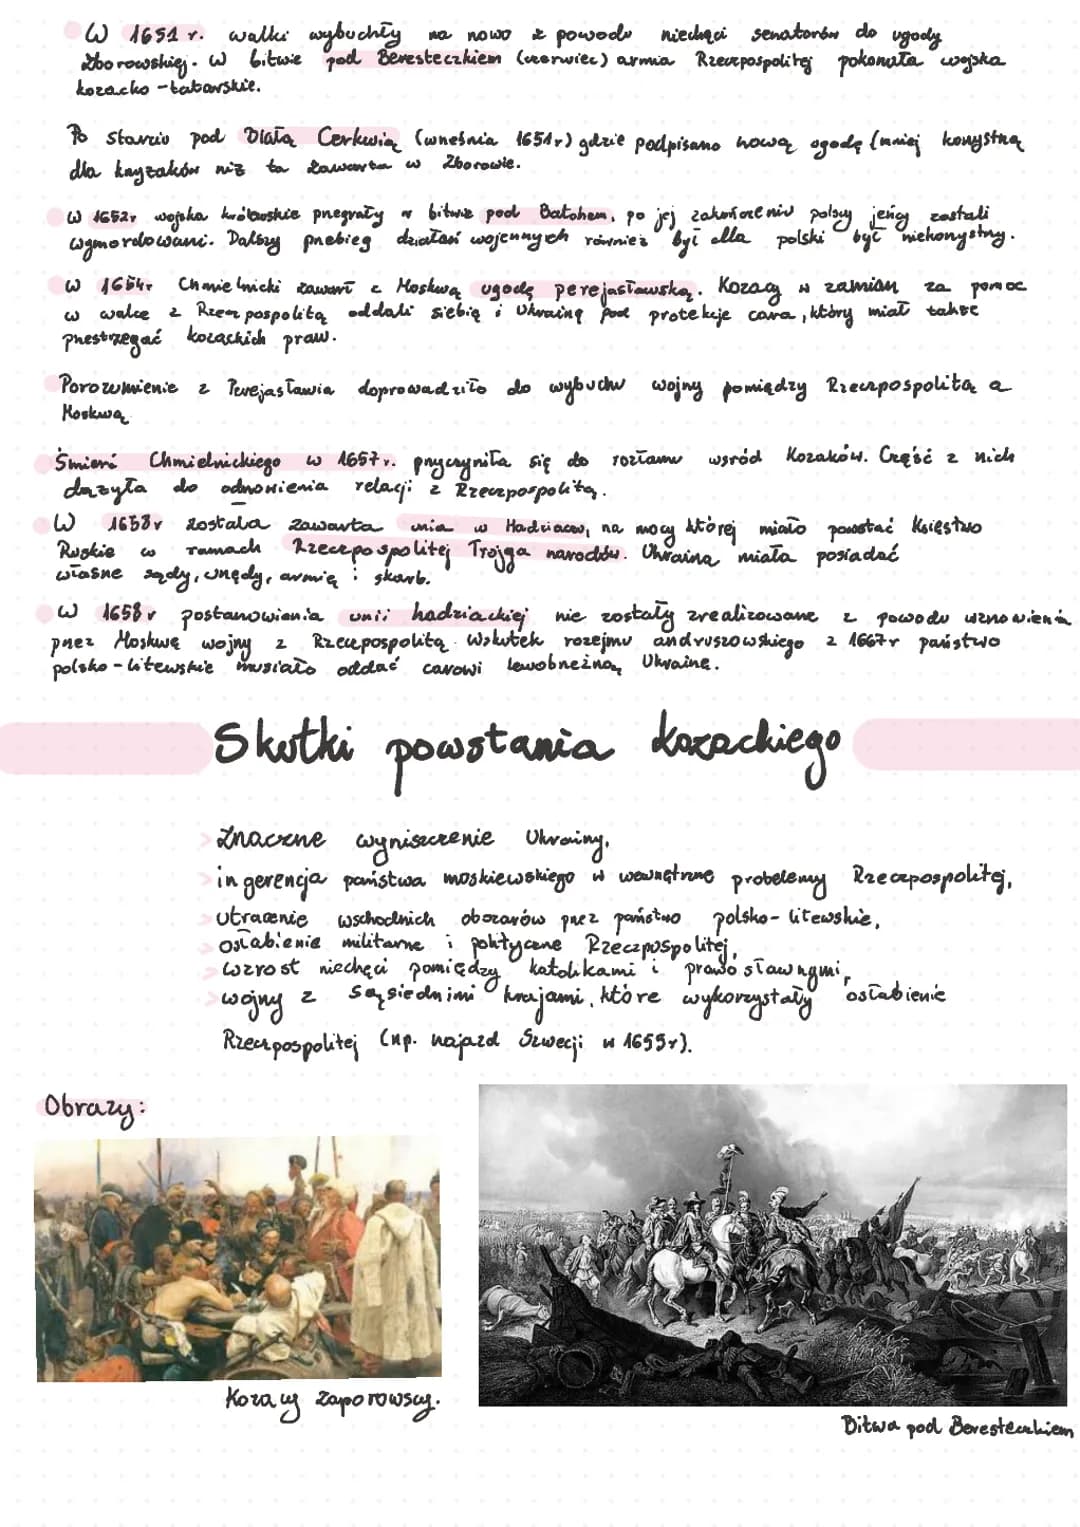 W 1651 r. walki wybuchły na nowo z powodu niechęci senatorów do ugody
Zborowskiej. W bitwie pod Beresteczkiem (czerwiec) armia Rzeczpospolitej pokonała wojska
kozacko-tatarskie.
Po starciu pod Białą Cerkwią (września 1651r) gdzie podpisano nową ugodę (mniej korzystną
dla kozaków niż ta zawarta w Zborowie.
W 1652r wojska królewskie przegrały w bitwie pod Batohem, po jej zakończeniu polscy jeńcy zostali
wymordowani. Dalszy przebieg działań wojennych również był dla polski być niekorzystny.
W 1654r Chmielnicki zawarł z Moskwą ugodę perejasławską. Kozacy w zamian za pomoc
w walce z Rzeczpospolitą oddali siebie i Ukrainę pod protekcje cara, który miał także
przestrzegać kozackich praw.
Porozumienie z Perejasławia doprowadziło do wybuchu wojny pomiędzy Rzeczpospolitą a
Moskwą
Śmierć Chmielnickiego w 1657r. przyczyniła się do rozłamu wsród Kozaków. Część z nich
dążyła do odnowienia relacji z Rzeczpospolitą.
W 1658r została zawarta unia w Hadziaczu, na mocy której miało powstać Księstwo
Ruskie w ramach Rzeczpospolitej Trojga narodów. Ukraina miała posiadać
własne sądy, urzędy, armię i skarb.
W 1658r postanowienia unii hadziackiej nie zostały zrealizowane z powodu wznowienia
przez Moskwę wojny z Rzeczpospolitą. Wskutek rozejmu andruszowskiego z 1667r państwo
polsko-litewskie musiało oddać carowi lewobrzeżną Ukrainę.
Skutki powstania kozackiego
> Znaczne wyniszczenie Ukrainy,
> ingerencja państwa moskiewskiego w wewnętrzne probelemy Rzeczpospolitej,
> utracenie wschodnich obszarów przez państwo polsko-litewskie,
> osłabienie militarne i polityczne Rzeczpospolitej,
> wzrost niechęci pomiędzy katolikami i prawosławnymi,
> wojny z sąsiednimi krajami, które wykorzystały osłabienie
Rzeczpospolitej (np. najazd Szwecji w 1655r).
Obrazy:
Kozacy Zaporowscy.
Bitwa pod Beresteczkiem